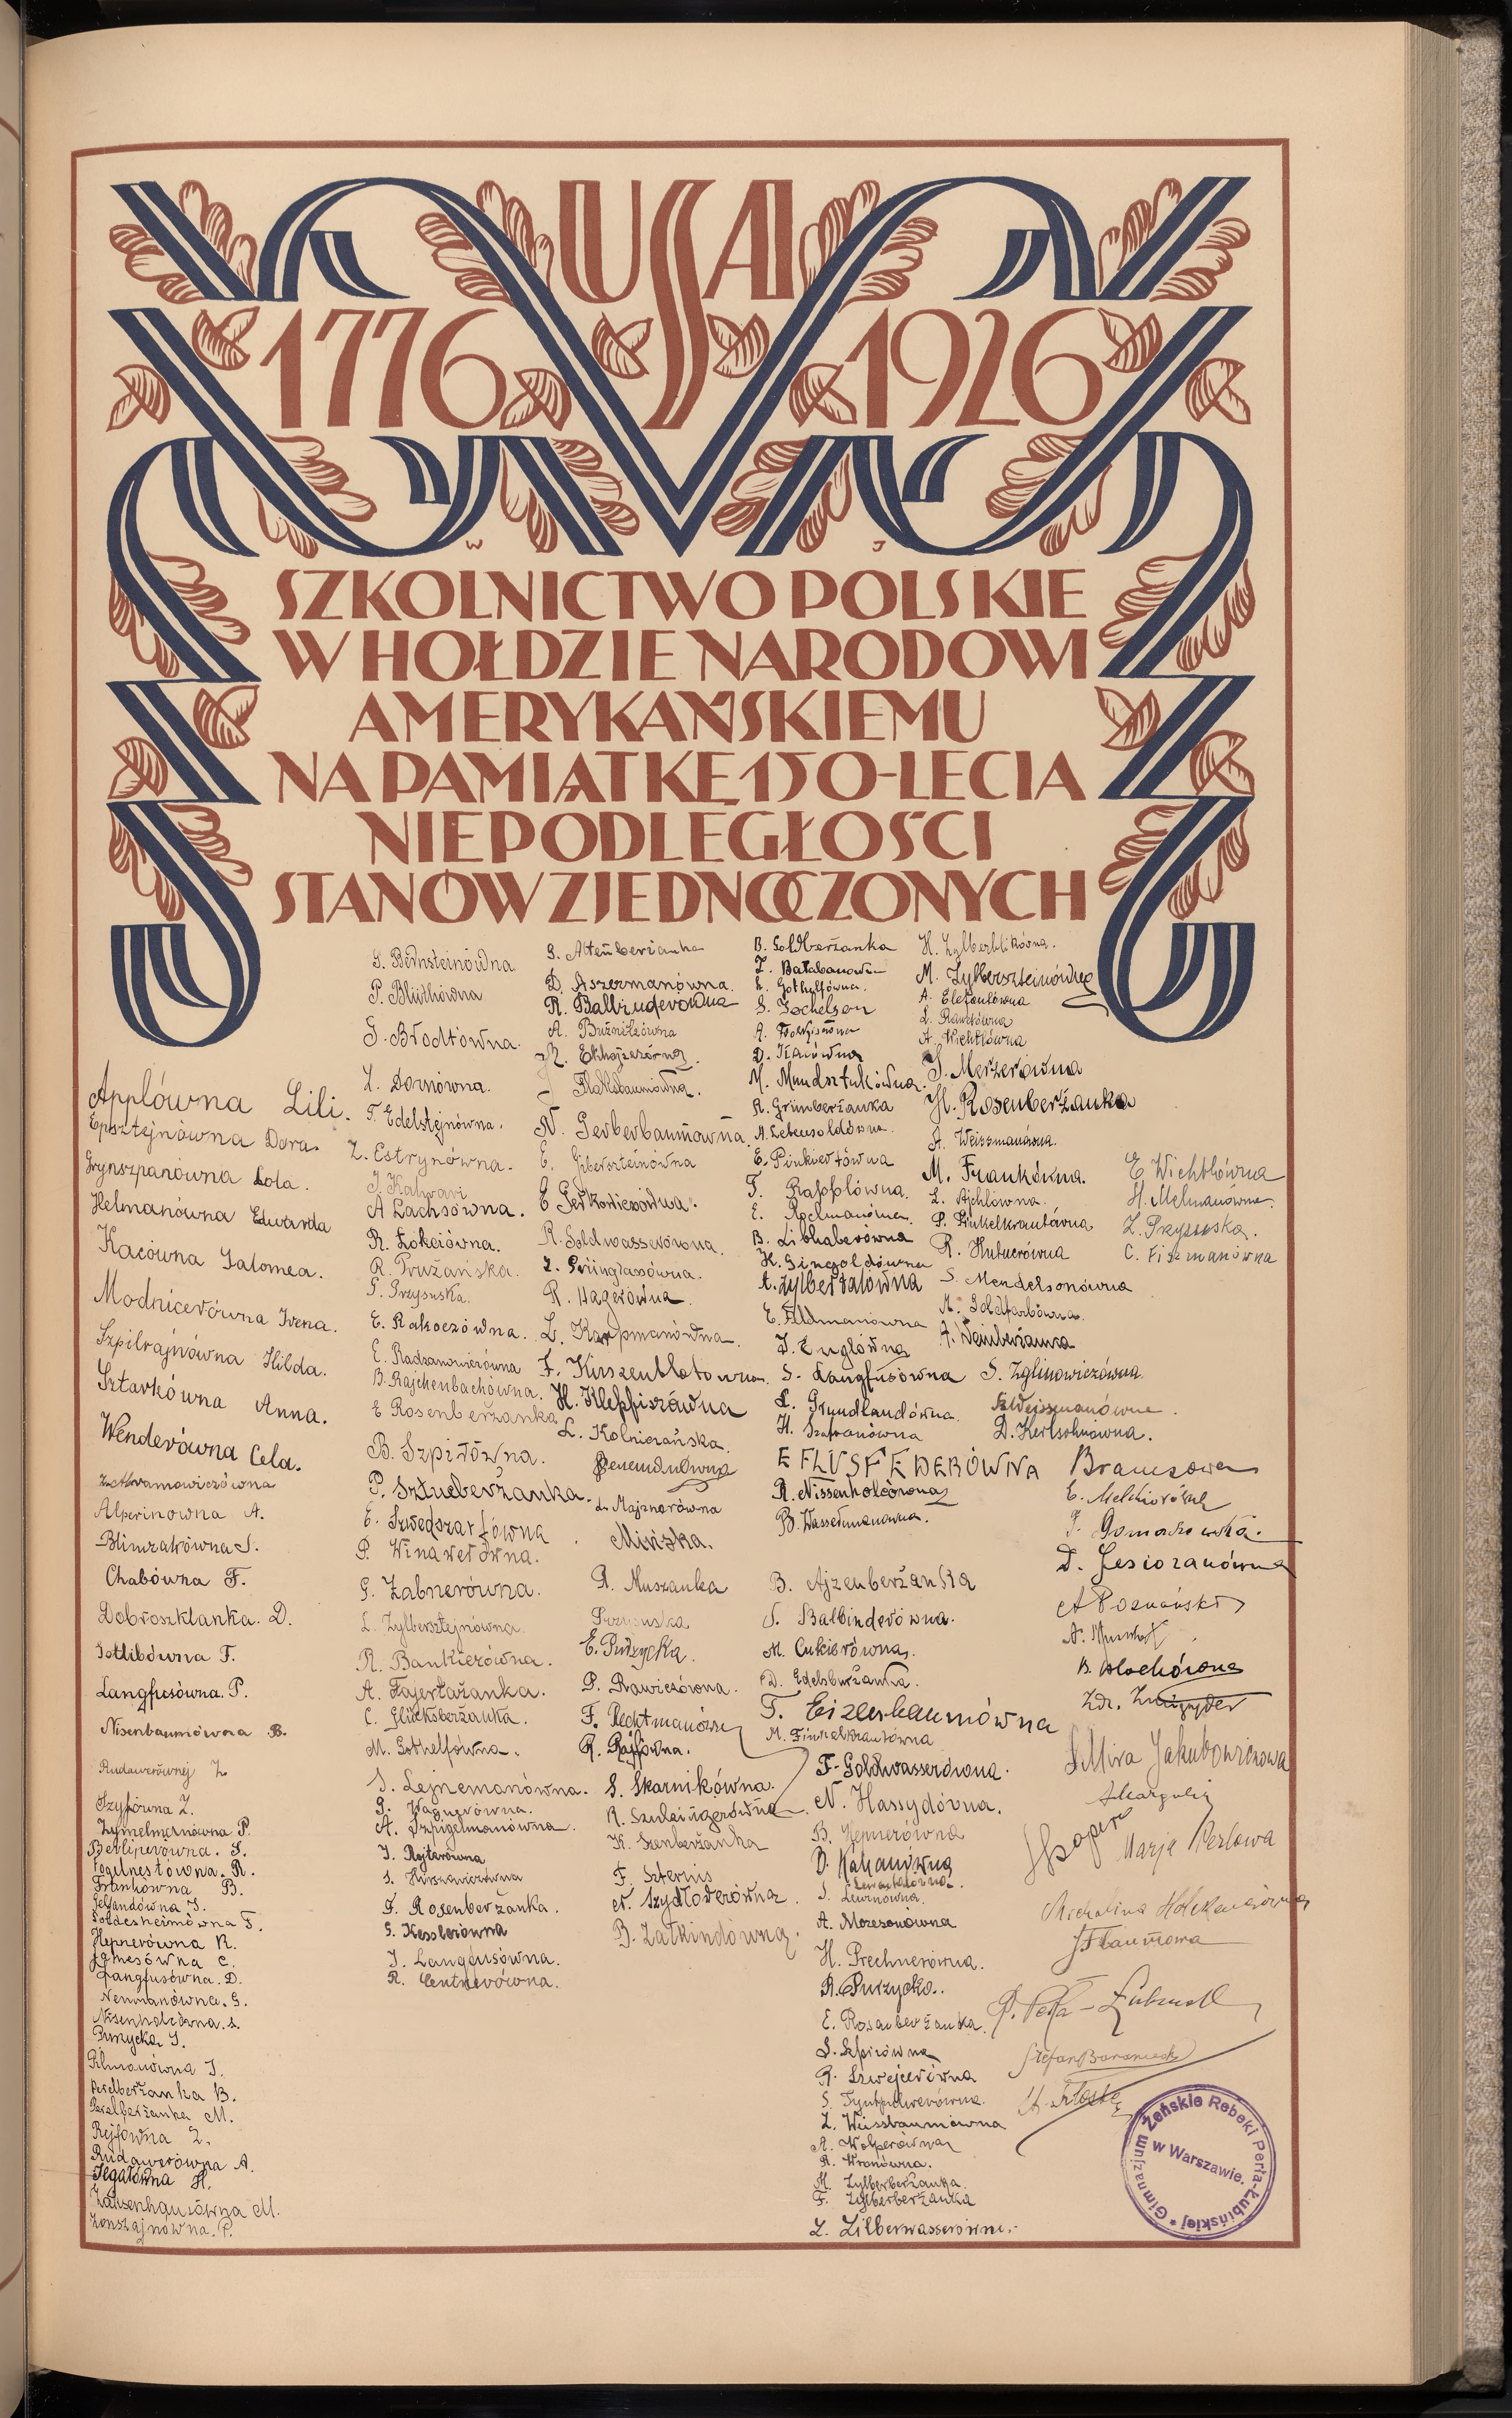 USA
1776 1926
W J
SZKOLNICTWO POLSKIE
W HOŁDZIE NARODOWI
AMERYKAŃSKIEMU
NA PAMIĄTKĘ 150-LECIA
NIEPODLEGŁOŚCI
STANÓW ZJEDNOCZONYCH
Applówna Lili.
Epsztejnówna Dora.
Grynszpanówna Lola.
Helmanówna Edwarda
Kacówna Salomea.
Modnicerówna Irena.
Szpilrajnówna Hilda.
Sztarkówna Anna.
Wenderówna Cela.
Abramowiczówna
Alperinowna A.
Blimzakówna S.
Chabówna F.
Dobroszklanka. D.
Gotlibówna F.
Langfusówna. P.
Nisenbaumówna B.
Rudawerównej Z
Szyfówna Z.
Zymelmanówna P.
Berliperówna. S.
Fogelnestówna. R.
Frankówna B.
Gelandówna S.
Goldesheimówna F.
Hepnerówna R.
Jamesówna C.
Langfusówna. D.
Neumanówna. G.
Nisenholcówna. S.
Purzycka. S.
Pilmanówna J.
Perelberżanka B.
Perelberżanka M.
Rejfówna Z.
Rudawerówna A.
Segałówna H.
Zausenhauzówna M.
Zonszajnówna. P.
G. Bernsteinówna
P. Bliwhówna
S. Brodtówna.
Z. Dornówna.
F. Edelstejnówna.
Z. Estrynówna.
J. Kalwari
A Lachsówna.
R. Łokciówna.
R. Prużańska.
G. Przysuska.
E. Rakoczówna.
E. Radzanowiczówna
B. Rajchenbachówna.
E Rosenberżanka
B. Szpiłówna.
P. Sztucberżanka.
E. Szwedszarfówna
P. Winawerówna.
G. Zabnerówna.
L. Zylbersztejnówna.
R. Bankierówna.
A. Fajertażanka.
C. Glücksberżanka.
M. Gothelfówna.
S. Lejnemanówna.
G. Wagnerówna.
A. Szpigelmanówna.
J. Rojterówna
S. Hurszowiczówna
G. Rosenberżanka.
G. Kesslerówna
J. Langfusówna.
R. Centnerówna.
G. Altenberżanka
D. Aszermanówna.
R. Balbinderówna
A. Buźnikówna
J. Flaksbaumówna.
N. Gerberbaumówna.
E. Giberszteinówna
E Gerkowiczówna.
R. Goldwasserówna.
I. Grünglasówna.
R. Hagerówna
L. Karpmanówna.
F. Kirszenblatówna.
H. Klepfiszówna
L. Kolniczańska.
L. Majznerówna
Mińska.
A. Muszanka
Przysuska
E. Purzycka.
P. Rawiczówna.
F. Rechtmanówna
R. Rajfówna.
S. Skarnikówna.
R. Szulcingerówna
K. Szenberżanka
F. Szternis
N. Szydłowerówna.
B. Załkindówna.
B. Goldberżanka
T. Bałabanówna
L. Gothelfówna.
S. Jochelson
D. Kacówna
M. Mundsztukówna.
R. Grünberżanka
N. Lebensoldówna.
E. Pinkiertówna
T. Rapplówna.
E. Rzelmanówna.
B. Libhaberówna
H. Gingoldówna
A. Zylbertalówna
E. Feldmanówna
J. Englówna
S. Langfusówna
L. Grundlandówna.
H. Szafranówna
E FLUSFEDERÓWNA
R. Nissenholcówna
B. Wassermanówna.
B. Ajzenberżanka
S. Balbinderówna.
M. Cukierówna.
D. Edelsburżanka.
T. Eizenbaumówna
M. Finkielkrautówna
F. Goldwasserówna.
N. Hassydówna.
B. Hepnerówna
B. Kahanówna
Lewartówna.
S. Lewinówna.
A. Mozesonówna
H. Prechnerówna.
R. Purzycka.
E. Rosenberżanka.
S. Szpirówna
R. Szwejcerówna
S. Tyntpulwerówna.
Z. Weissbaumówna
A. Wolperówna
R. Wronówna.
M. Zylberberżanka.
F. Zylberberżanka
Z. Zilberwasserówna.
H. Zylberblikówna.
M. Zylberszteinówna
A. Elefantówna
L. Rawetówna
A. Wichtlówna
J. Merzerówna
H. Rosenberżanka
A. Weiszmanówna.
M. Frankówna.
L. Ajchlówna.
P. Finkelkrautówna
R. Hutnerówna
S. Mendelsonówna
M. Goldfarbówna.
A. Weinberżanka
S. Zglinowiczówna.
Sz. Wejszmanówna.
D. Kerłsohnówna.
E Wichtlówna
H. Melmanówna.
Z. Przysuska.
C. Fiszmanówna
Bramsowa
E. Melchiorówna
J. Gomaszewska.
D. Jesiozanówna
A Poznański
B. Blochówna
Zdz. Zmigryder
S. Mira Jakubowiczowa
A Margulis
J. Szapero
Marja Perlowa
J Flaumowa
P. Perla-Łubińska
Stefan Baraniecki
Gimnazjum Żeńskie Rebeki Perla-Łubińskiej
w Warszawie.